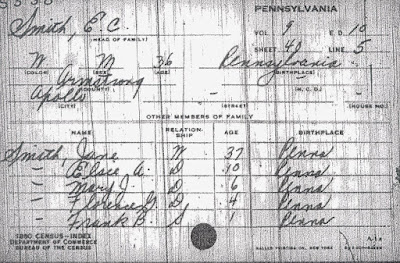 PENNSYLVANIA
Smith, E. C.
(HEAD OF FAMILY)
VOL 9 E.D. 10
SHEET 40 LINE 5
W M 36 Pennsylvania
(COLOR) (SEX) (AGE) (BIRTHPLACE)
Armstrong
(COUNTY) (M.C.D.)
Apollo
(CITY) (STREET) (HOUSE NO.)
OTHER MEMBERS OF FAMILY
NAME RELATION-SHIP AGE BIRTHPLACE
Smith, Jane W 37 Penna
" A. D 10 Penna
" Mary J. D 6 Penna
" Florence D 4 Penna
" Frank B. S 1 Penna
1880 CENSUS—INDEX
DEPARTMENT OF COMMERCE
BUREAU OF THE CENSUS